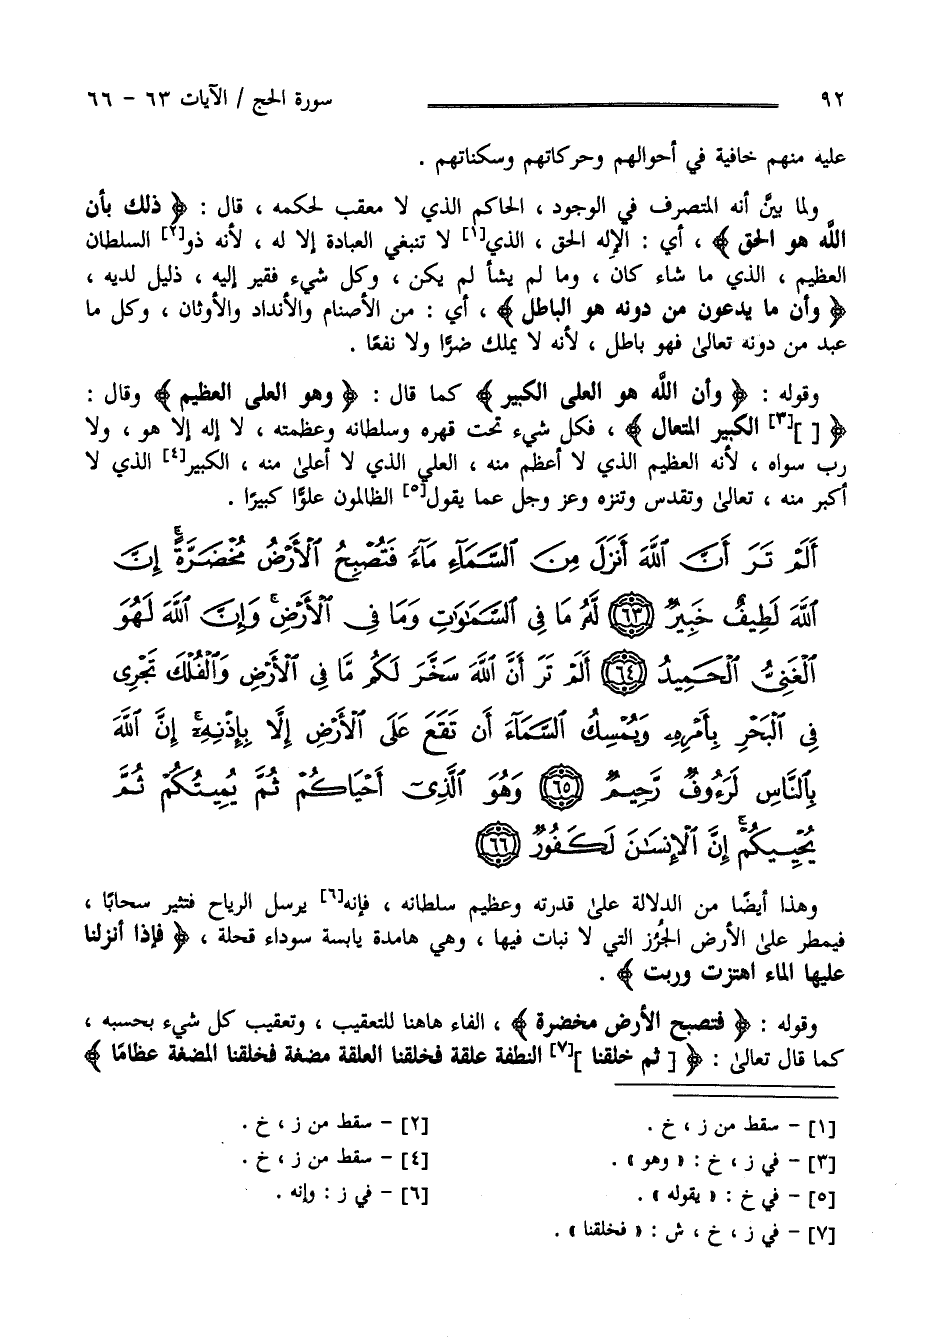 ٩٢ سورة الحج / الآيات ٦٣ - ٦٦
عليه منهم خافية في أحوالهم وحركاتهم وسكناتهم .
ولما بيَّن أنه المتصرف في الوجود ، الحاكم الذي لا معقب لحكمه ، قال : ﴿ ذلك بأن
اللَّه هو الحق ﴾ ، أي : الإله الحق ، الذي[١] لا تنبغي العبادة إلا له ، لأنه ذو[٢] السلطان
العظيم ، الذي ما شاء كان ، وما لم يشأ لم يكن ، وكل شيء فقير إليه ، ذليل لديه ،
﴿ وأن ما يدعون من دونه هو الباطل ﴾ ، أي : من الأصنام والأنداد والأوثان ، وكل ما
عبد من دونه تعالىٰ فهو باطل ، لأنه لا يملك ضرًّا ولا نفعًا .
وقوله : ﴿ وأن اللَّه هو العلى الكبير ﴾ كما قال : ﴿ وهو العلى العظيم ﴾ وقال :
﴿ [ ][٣] الكبير المتعال ﴾ ، فكل شيء تحت قهره وسلطانه وعظمته ، لا إله إلا هو ، ولا
رب سواه ، لأنه العظيم الذي لا أعظم منه ، العلي الذي لا أعلىٰ منه ، الكبير[٤] الذي لا
أكبر منه ، تعالىٰ وتقدس وتنزه وعز وجل عما يقول[٥] الظالمون علوًّا كبيرًا .
أَلَمْ تَرَ أَنَّ ٱللَّهَ أَنزَلَ مِنَ ٱلسَّمَآءِ مَآءً فَتُصْبِحُ ٱلْأَرْضُ مُخْضَرَّةً ۗ إِنَّ
ٱللَّهَ لَطِيفٌ خَبِيرٌ ﴿٦٣﴾ لَّهُ مَا فِى ٱلسَّمَـٰوَٰتِ وَمَا فِى ٱلْأَرْضِ ۗ وَإِنَّ ٱللَّهَ لَهُوَ
ٱلْغَنِىُّ ٱلْحَمِيدُ ﴿٦٤﴾ أَلَمْ تَرَ أَنَّ ٱللَّهَ سَخَّرَ لَكُم مَّا فِى ٱلْأَرْضِ وَٱلْفُلْكَ تَجْرِى
فِى ٱلْبَحْرِ بِأَمْرِهِۦ وَيُمْسِكُ ٱلسَّمَآءَ أَن تَقَعَ عَلَى ٱلْأَرْضِ إِلَّا بِإِذْنِهِۦٓ ۗ إِنَّ ٱللَّهَ
بِٱلنَّاسِ لَرَءُوفٌ رَّحِيمٌ ﴿٦٥﴾ وَهُوَ ٱلَّذِىٓ أَحْيَاكُمْ ثُمَّ يُمِيتُكُمْ ثُمَّ
يُحْيِيكُمْ ۗ إِنَّ ٱلْإِنسَـٰنَ لَكَفُورٌ ﴿٦٦﴾
وهذا أيضًا من الدلالة علىٰ قدرته وعظيم سلطانه ، فإنه[٦] يرسل الرياح فتثير سحابًا ،
فيمطر علىٰ الأرض الجُرُز التي لا نبات فيها ، وهي هامدة يابسة سوداء قحلة ، ﴿ فإذا أنزلنا
عليها الماء اهتزت وربت ﴾ .
وقوله : ﴿ فتصبح الأرض مخضرة ﴾ ، الفاء هاهنا للتعقيب ، وتعقيب كل شيء بحسبه ،
كما قال تعالىٰ : ﴿ [ ثم خلقنا ][٧] النطفة علقة فخلقنا العلقة مضغة فخلقنا المضغة عظامًا ﴾
[١] - سقط من ز ، خ . [٢] - سقط من ز ، خ .
[٣] - في ز ، خ : « وهو » . [٤] - سقط من ز ، خ .
[٥] - في خ : « يقوله » . [٦] - في ز : وإنه .
[٧] - في ز ، خ ، ش : « فخلقنا » .